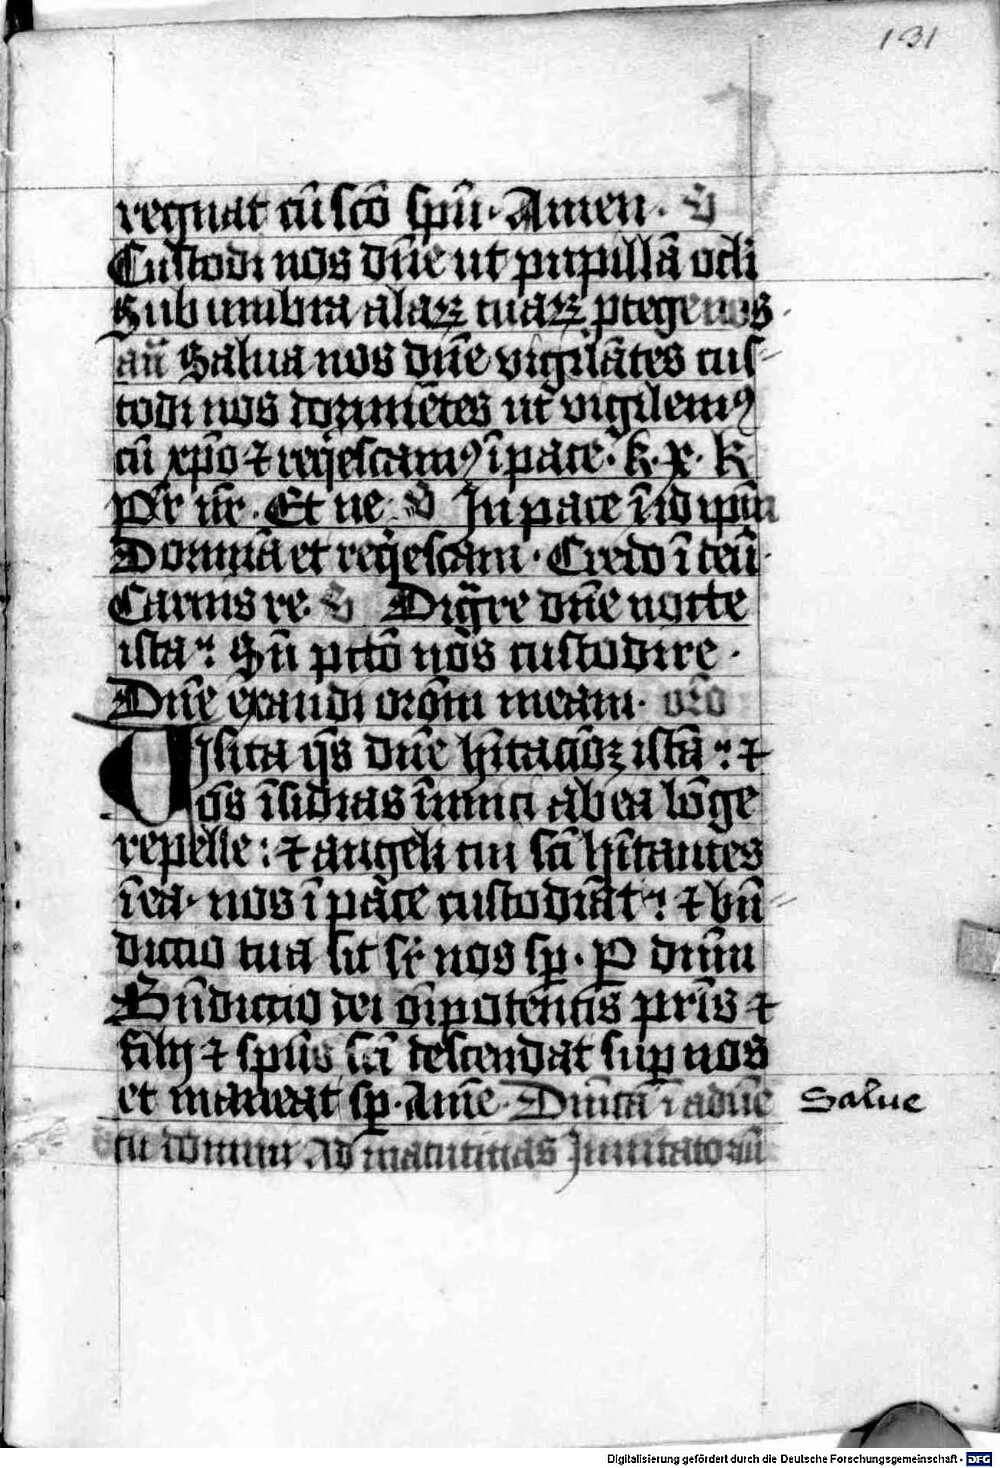 131
regnat cū sco̅ spū. Amen. V̄
Custodi nos dn̄e ut pupillā oc̄li
Sub umbra alaꝝ tuaꝝ ꝓtege nos.
an̄ Salua nos dn̄e vigilātes cus⸗
todi nos dormiētes ut vigilemꝰ
cū xp̄o ⁊ req̄escamꝰ ī pace. k. x. k
Pr̄ nr̄. Et ne. V̄ In pace ī id ip̄m
Dormiā et req̄escam. Credo ī deū.
Carnis re. V̄ Dig̅re dn̄e nocte
ista. Sn̄ pcc̄o nos custodire.
Dn̄e exaudi or̄om meam. or̄o
Visita q̄s dn̄e hītacōꝫ istā. ⁊
oēs īsidias īimici ab ea lōge
repelle: ⁊ angeli tui scī hītantes
ī ea. nos ī pace custodiāt. ⁊ bn̄⸗
dictio tua sit sr̄ nos sꝑ. P dnm̄
Bn̄dictio dei oīpotentis pr̄is ⁊
filij ⁊ sp̄us scī descendat suꝑ nos
et maneat sꝑ. Amē. Dn̄ica ī aduē
tu domini Ad matutinas Inuitatoriū
Salue
Digitalisierung gefördert durch die Deutsche Forschungsgemeinschaft - DFG